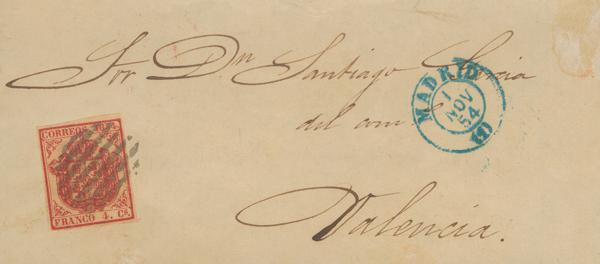 Sor. Dn. Santiago García
del com
Valencia.
MADRID
1
NOV
54
(1)
CORREOS 18
FRANCO 4. Cs.